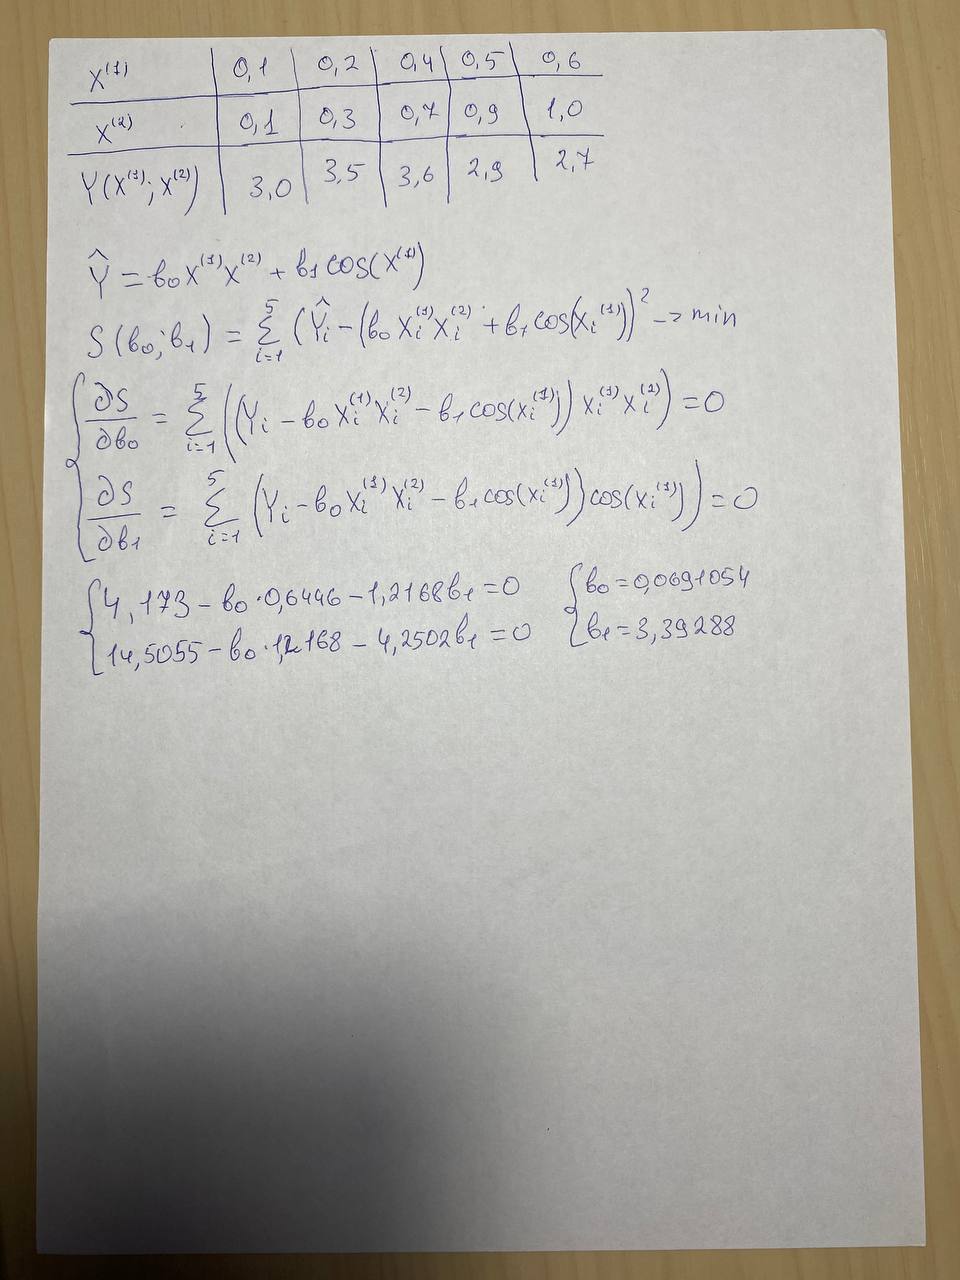 X⁽¹⁾ | 0,1 | 0,2 | 0,4 | 0,5 | 0,6
X⁽²⁾ | 0,1 | 0,3 | 0,7 | 0,9 | 1,0
Y(X⁽¹⁾; X⁽²⁾) | 3,0 | 3,5 | 3,6 | 2,9 | 2,7
Ŷ = b₀X⁽¹⁾X⁽²⁾ + b₁cos(X⁽¹⁾)
S(b₀; b₁) = Σᵢ₌₁⁵ (Ŷᵢ − (b₀Xᵢ⁽¹⁾Xᵢ⁽²⁾ + b₁cos(Xᵢ⁽¹⁾))² → min
∂S/∂b₀ = Σᵢ₌₁⁵ ((Yᵢ − b₀Xᵢ⁽¹⁾Xᵢ⁽²⁾ − b₁cos(xᵢ⁽¹⁾)) Xᵢ⁽¹⁾Xᵢ⁽²⁾) = 0
∂S/∂b₁ = Σᵢ₌₁⁵ (Yᵢ − b₀Xᵢ⁽¹⁾Xᵢ⁽²⁾ − b₁cos(xᵢ⁽¹⁾)) cos(xᵢ⁽¹⁾)) = 0
4,173 − b₀·0,6446 − 1,2168b₁ = 0 b₀ = 0,0691054
14,5055 − b₀·1,2168 − 4,2502b₁ = 0 b₁ = 3,39288